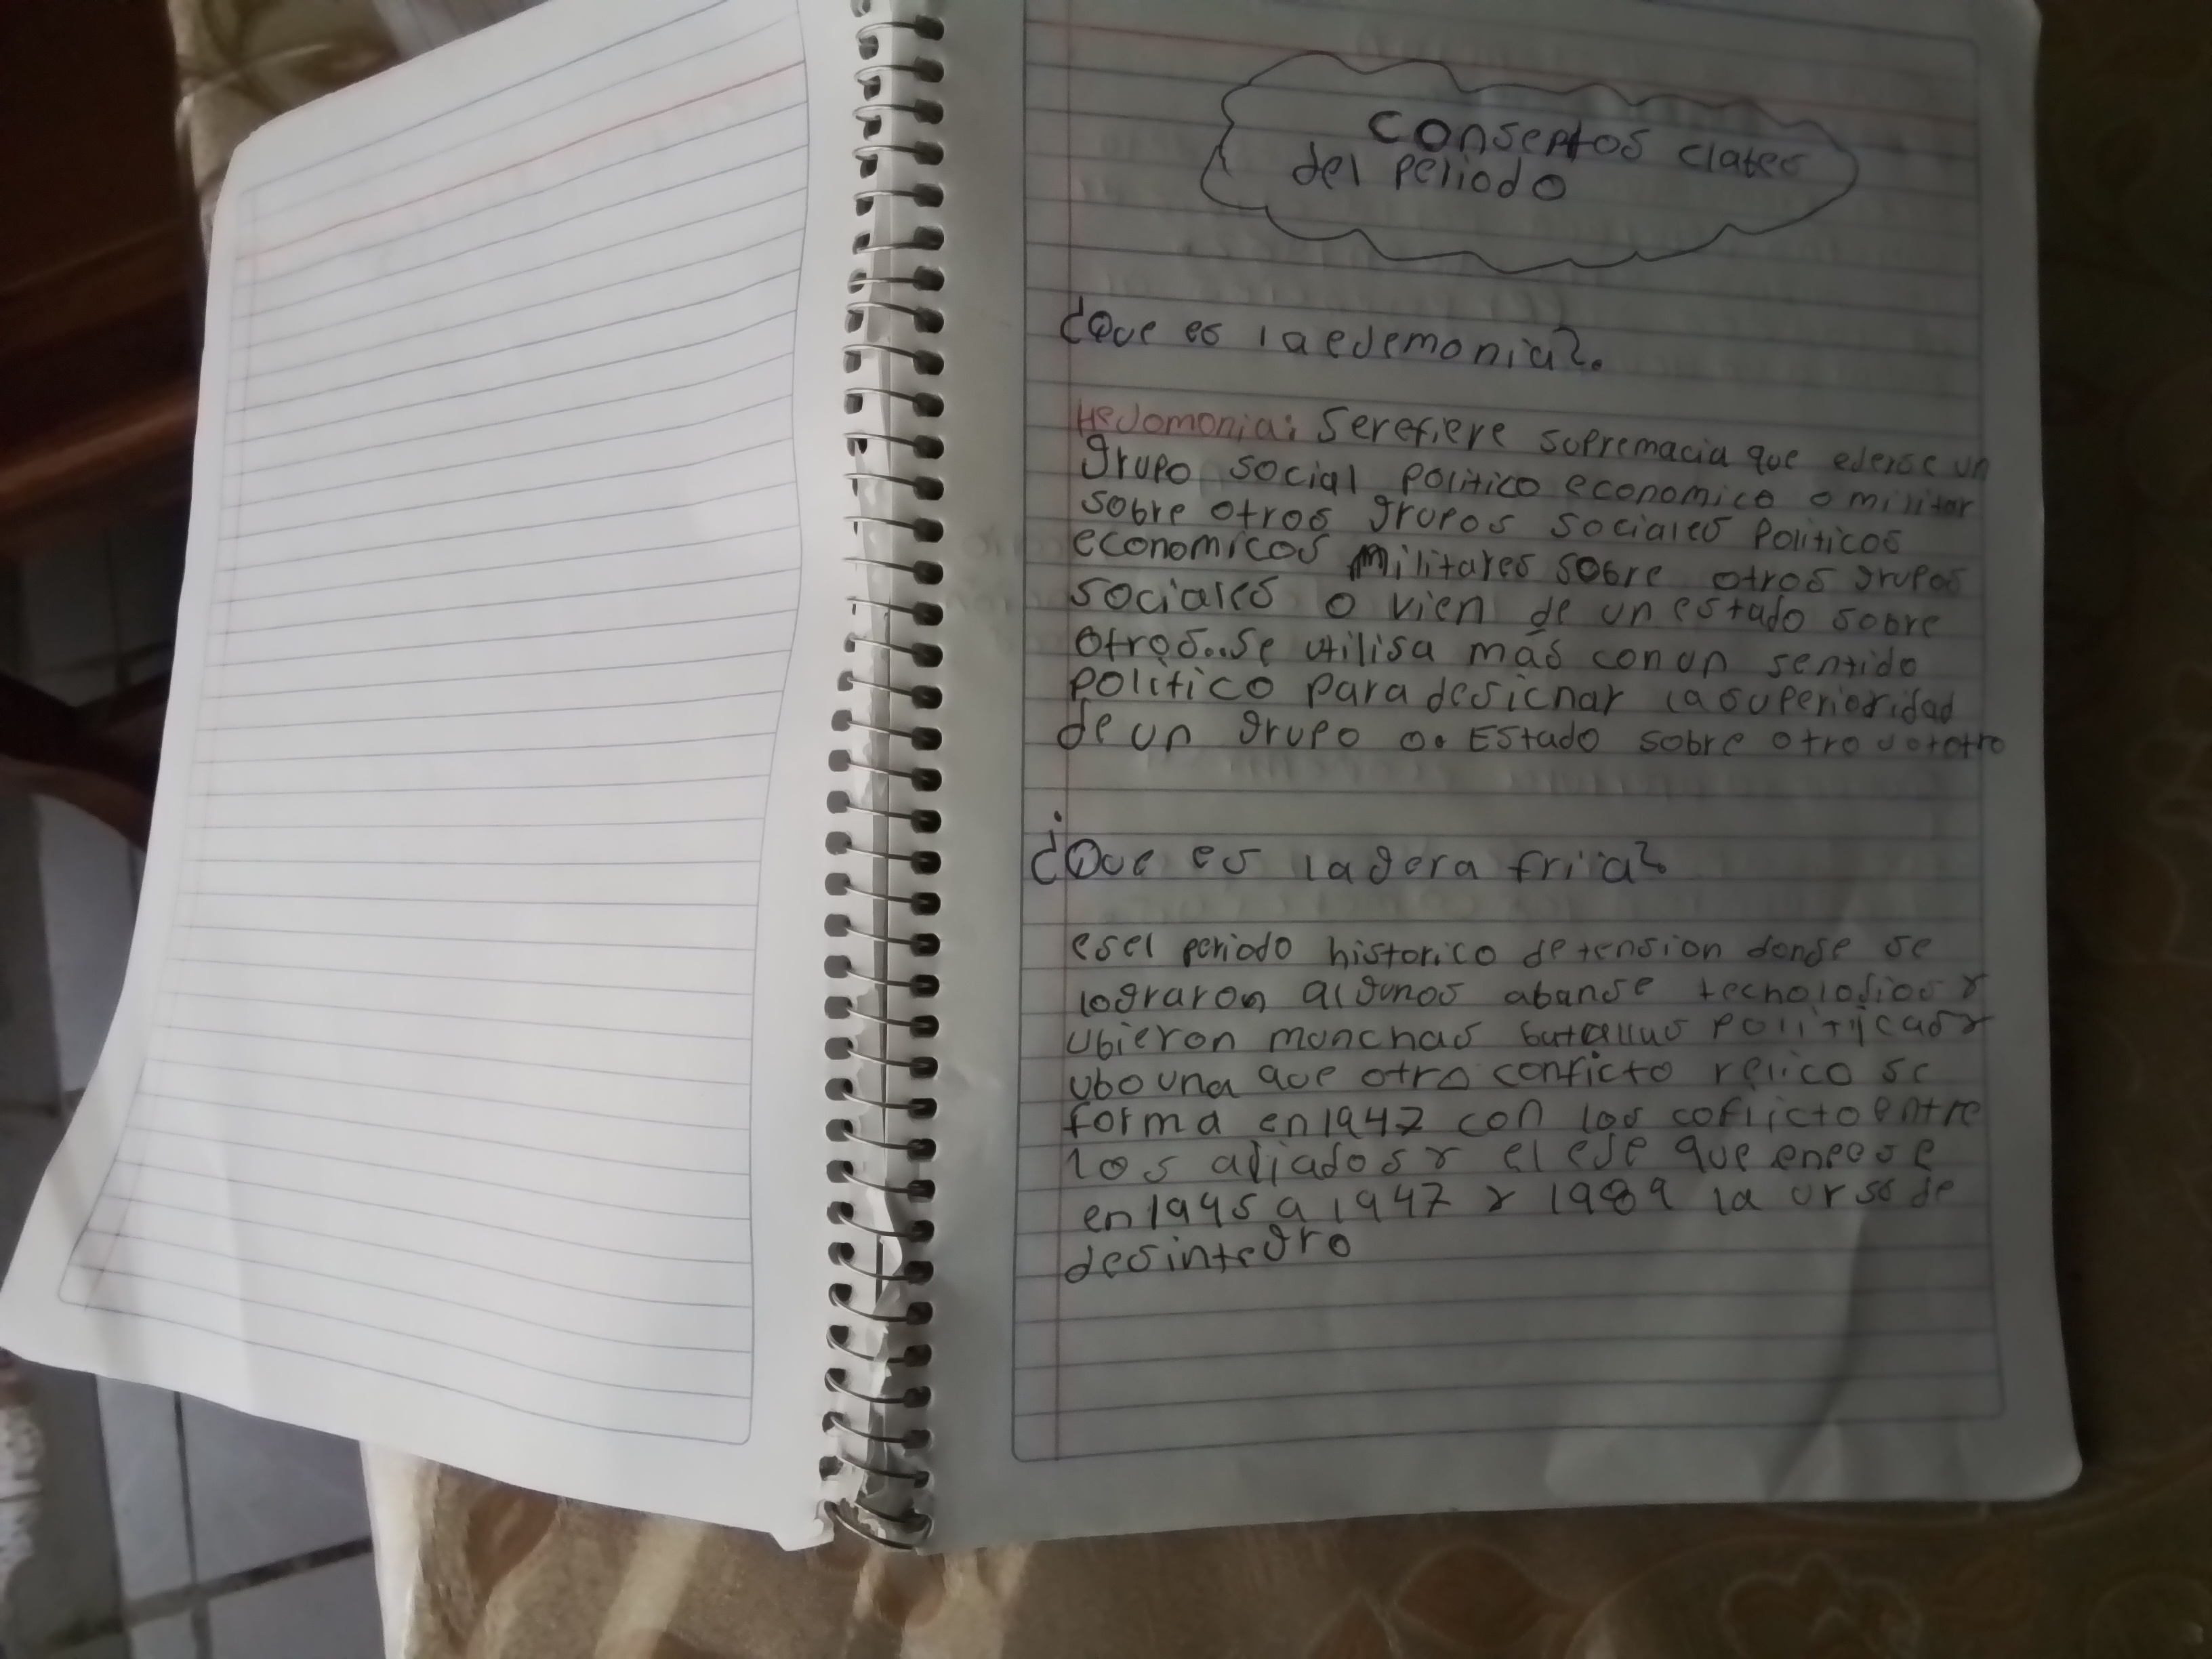 conseptos clabes
del periodo
¿Que es la ejemonia?.
Hejomonia: Serefiere supremacia que ejerse un
grupo social politico economico o militar
sobre otros grupos sociales politicos
economicos militares sobre otros grupos
sociales o vien de un estado sobre
otros..se utilisa más con un sentido
politico para desichar la superioridad
de un grupo o. Estado sobre otro
¿Que es la gera friia?
esel periodo historico de tension donde se
lograron algunos abanse tecnolojios y
ubieron munchas batallas politicas y
ubo una que otro conficto relico se
forma en 1947 con los coflicto entre
los aliados y el eje que enpose
en 1945 a 1947 y 1989 la urss de
desintegro